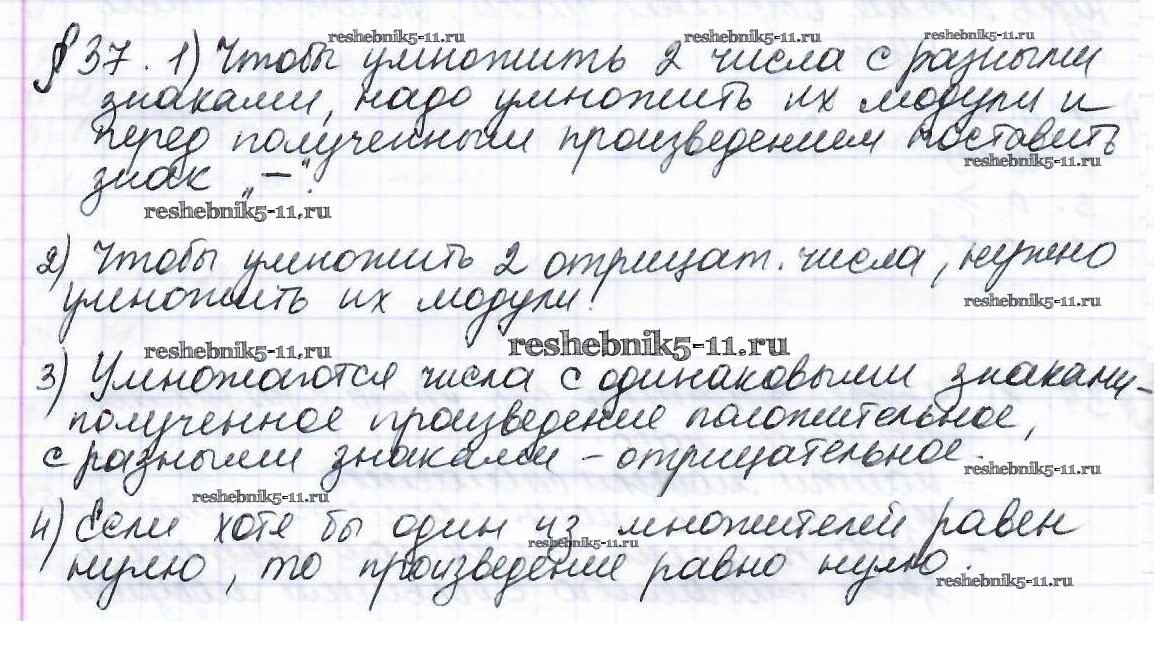 reshebnik5-11.ru reshebnik5-11.ru reshebnik5-11.ru
§ 37. 1) Чтобы умножить 2 числа с разными
знаками, надо умножить их модули и
перед полученным произведением поставить
reshebnik5-11.ru
знак „–“.
reshebnik5-11.ru
2) Чтобы умножить 2 отрицат. числа, нужно
умножить их модули.
reshebnik5-11.ru
reshebnik5-11.ru reshebnik5-11.ru
3) Умножаются числа с одинаковыми знаками–
полученное произведение положительное,
с разными знаками – отрицательное.
reshebnik5-11.ru
reshebnik5-11.ru
4) Если хотя бы один из множителей равен
reshebnik5-11.ru
нулю, то произведение равно нулю.
reshebnik5-11.ru